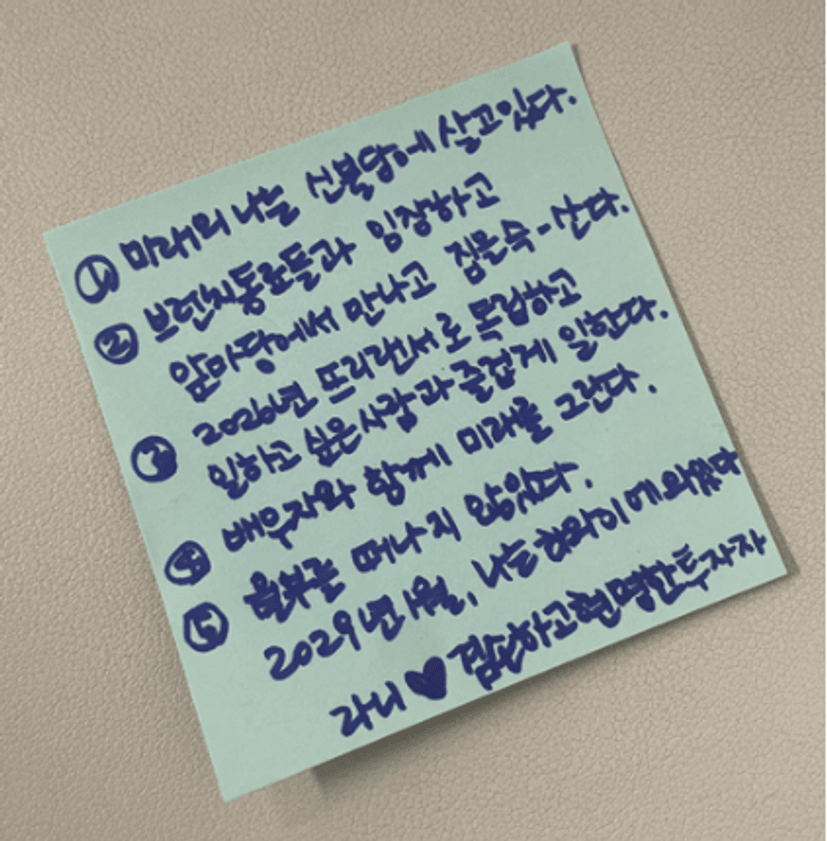 ① 미래의 나는 신불당에 살고있다.
② 브런치동료들과 임장하고
앞마당에서 만나고 집문숙-산다.
③ 2026년 프리랜서로 독립하고
일하고 싶은사람과 즐겁게 일한다.
④ 배우자와 함께 미래를 그린다.
⑤ 월부를 떠나지 않았다.
2029년 1월, 나는 하와이에 와있다
라니♥겸손하고현명한투자자